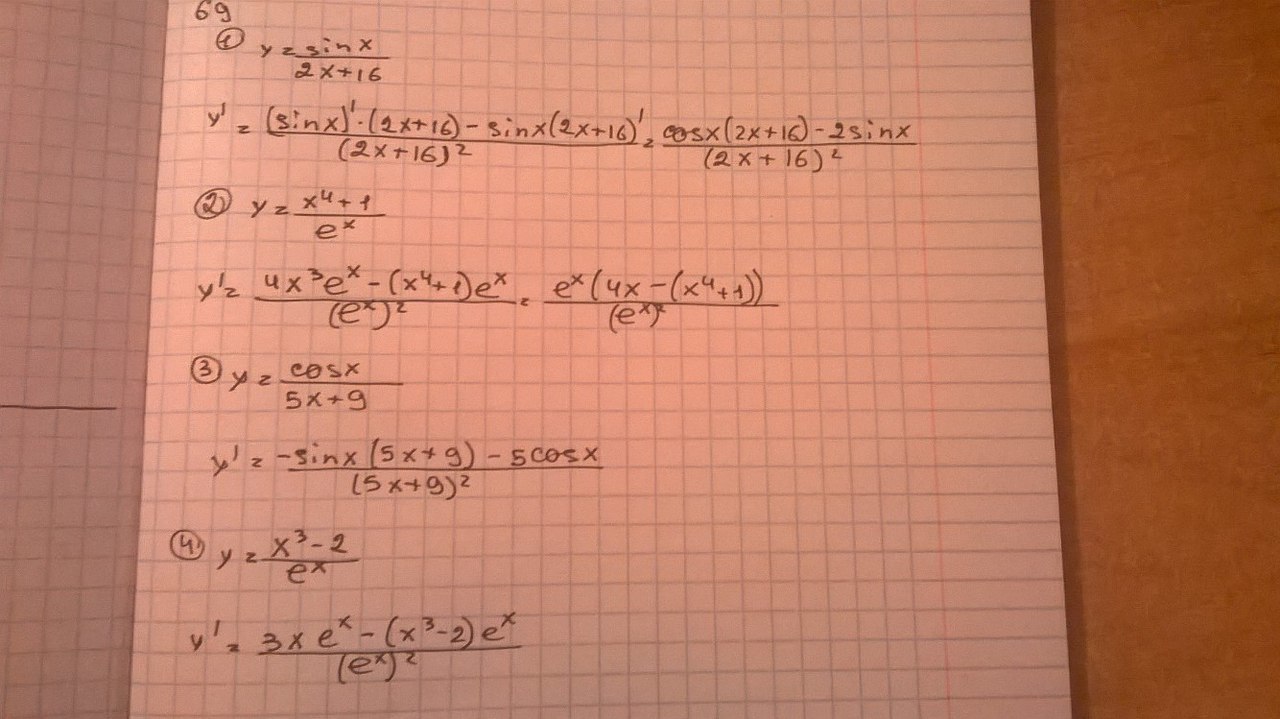 69
① y = sinx / 2x+16
y' = (sinx)'·(2x+16) - sinx(2x+16)' / (2x+16)² = cosx(2x+16) - 2sinx / (2x+16)²
② y = x⁴+1 / eˣ
y' = 4x³eˣ - (x⁴+1)eˣ / (eˣ)² = eˣ(4x - (x⁴+1)) / (eˣ)²
③ y = cosx / 5x+9
y' = -sinx(5x+9) - 5cosx / (5x+9)²
④ y = x³-2 / eˣ
y' = 3x eˣ - (x³-2)eˣ / (eˣ)²